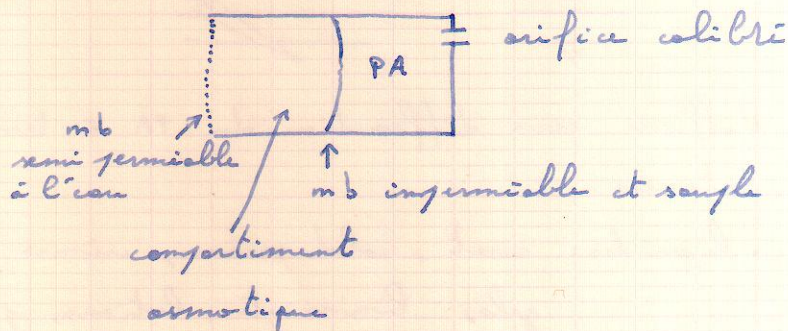 orifice calibré
PA
mb
semi perméable
à l'eau
mb imperméable et souple
compartiment
osmotique